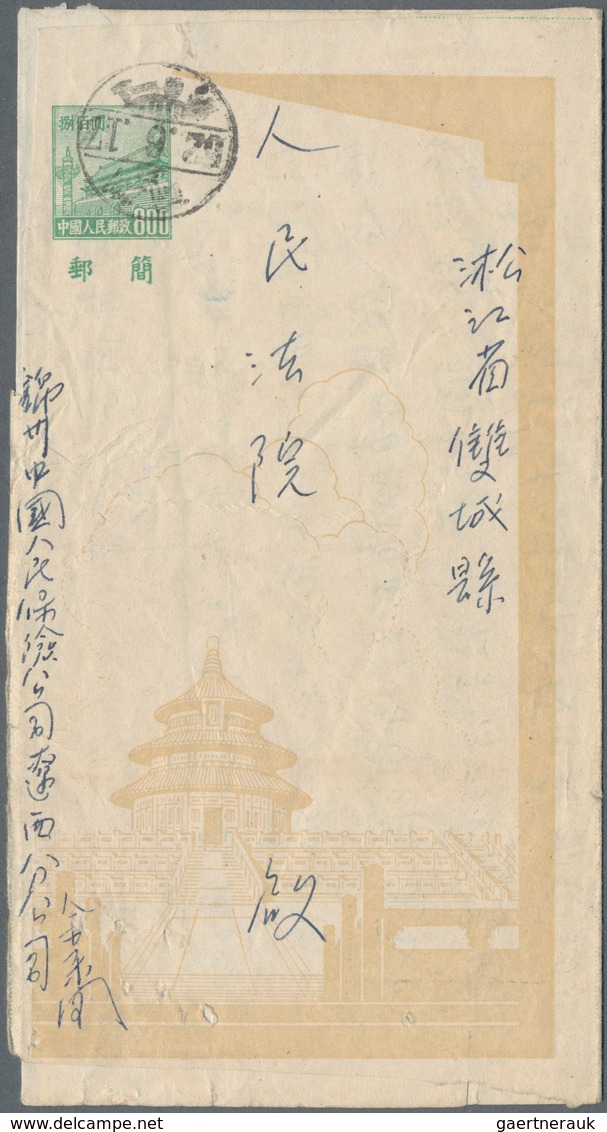 捌佰圓
52.6.17
中國人民郵政 800
郵簡
淞江省雙城縣
人民法院 啟
錦州中國人民保險公司遼西分公司
gaertnerauk